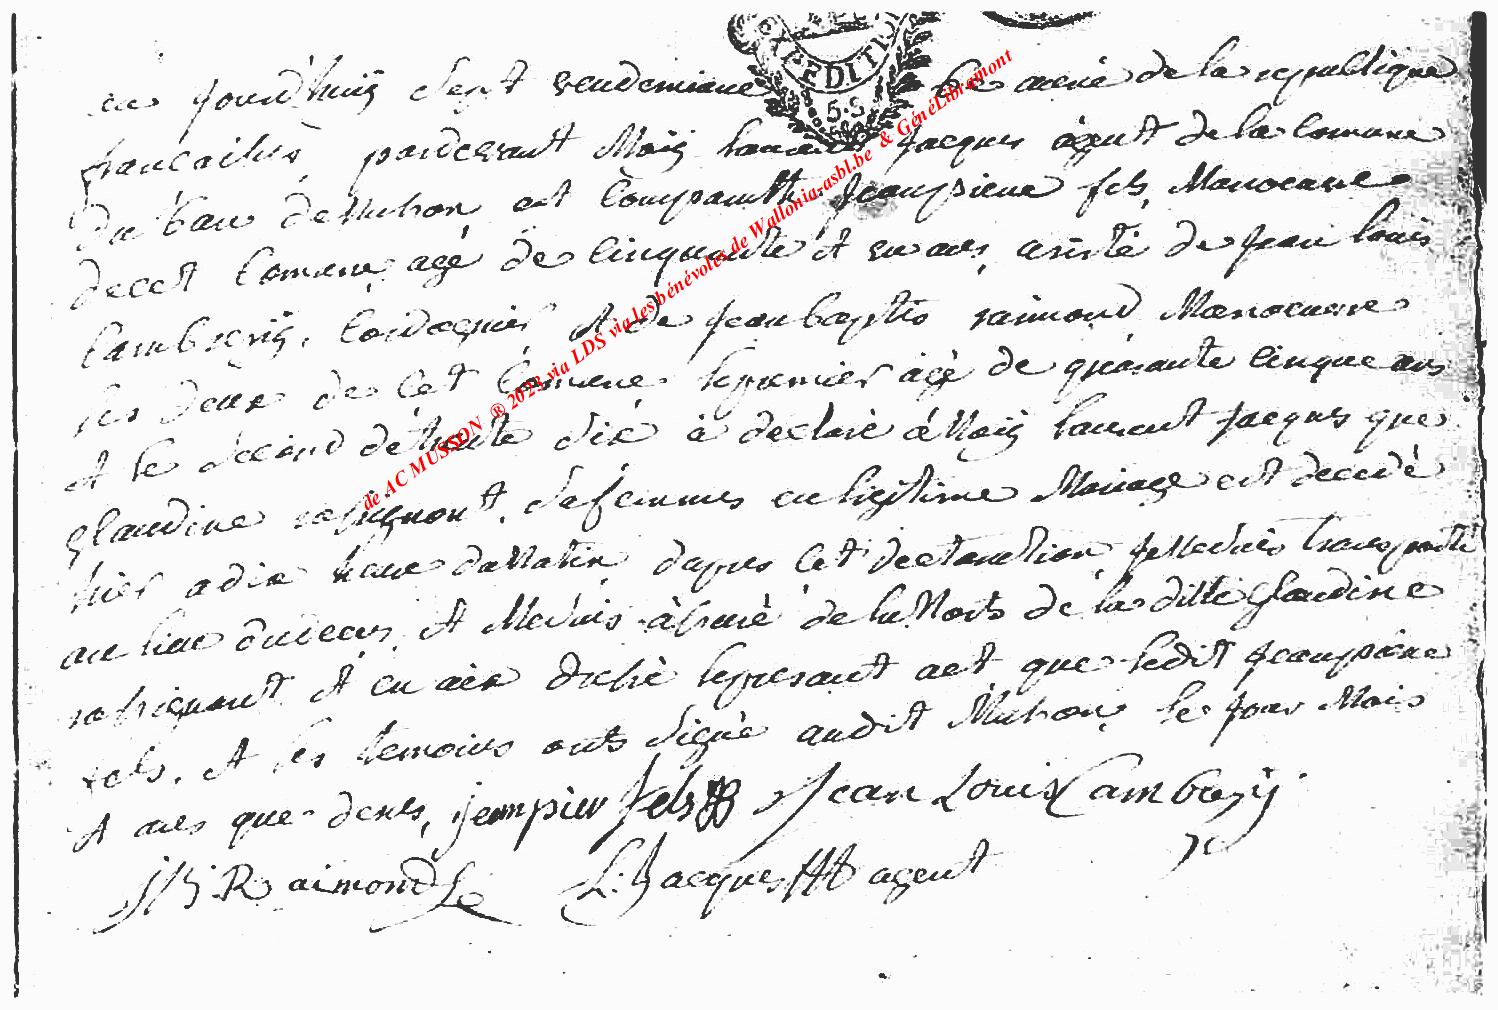 EXPEDITION
5.S
ce jourd'huij sept vendemiaire anné de la republique
francaises pardevant Moij laurent Jacques agent de la Comune
du ban de Muhon est Comparu Jeanpierre fels, Manoeuvre
decet Comune, agé de Cinquante et un ans, assisté de jean louis
Cambresij, Cordagnier, et de jean baptis raimond Manoeuvre
les deux de Cet Comune le premier agé de quarante Cinque ans
et le second de trente six à declaré à Moij laurent Jacques que
glaudine rossignont, sa femmes en legitime Mariage est decedé
hier a dix heure du Matin, dapres Cet declaration, je Me suis transporté
au lieu du deces, et Me suis assuré de la Morts de la ditte Glaudine
rossignont et en aix dressé le presant act que ledit jeanpiere
fels, et les temoins onts signé audit Muhon, le jour Mois
et ans que desus, jeempier fels Jean Louis Cambresij
JB: Raimond L: Jacques agent
de AC MUSSON ® 2023 via LDS via les bénévoles de Wallonia-asbl.be & GénéLibramont